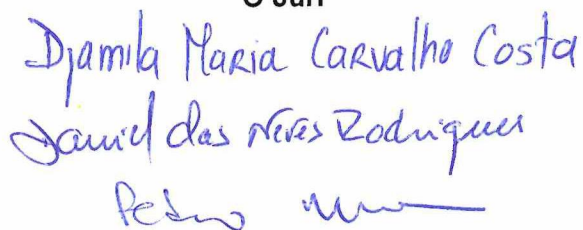 O Júri
Djamila Maria Carvalho Costa
Daniel das Neves Rodrigues
Pedro